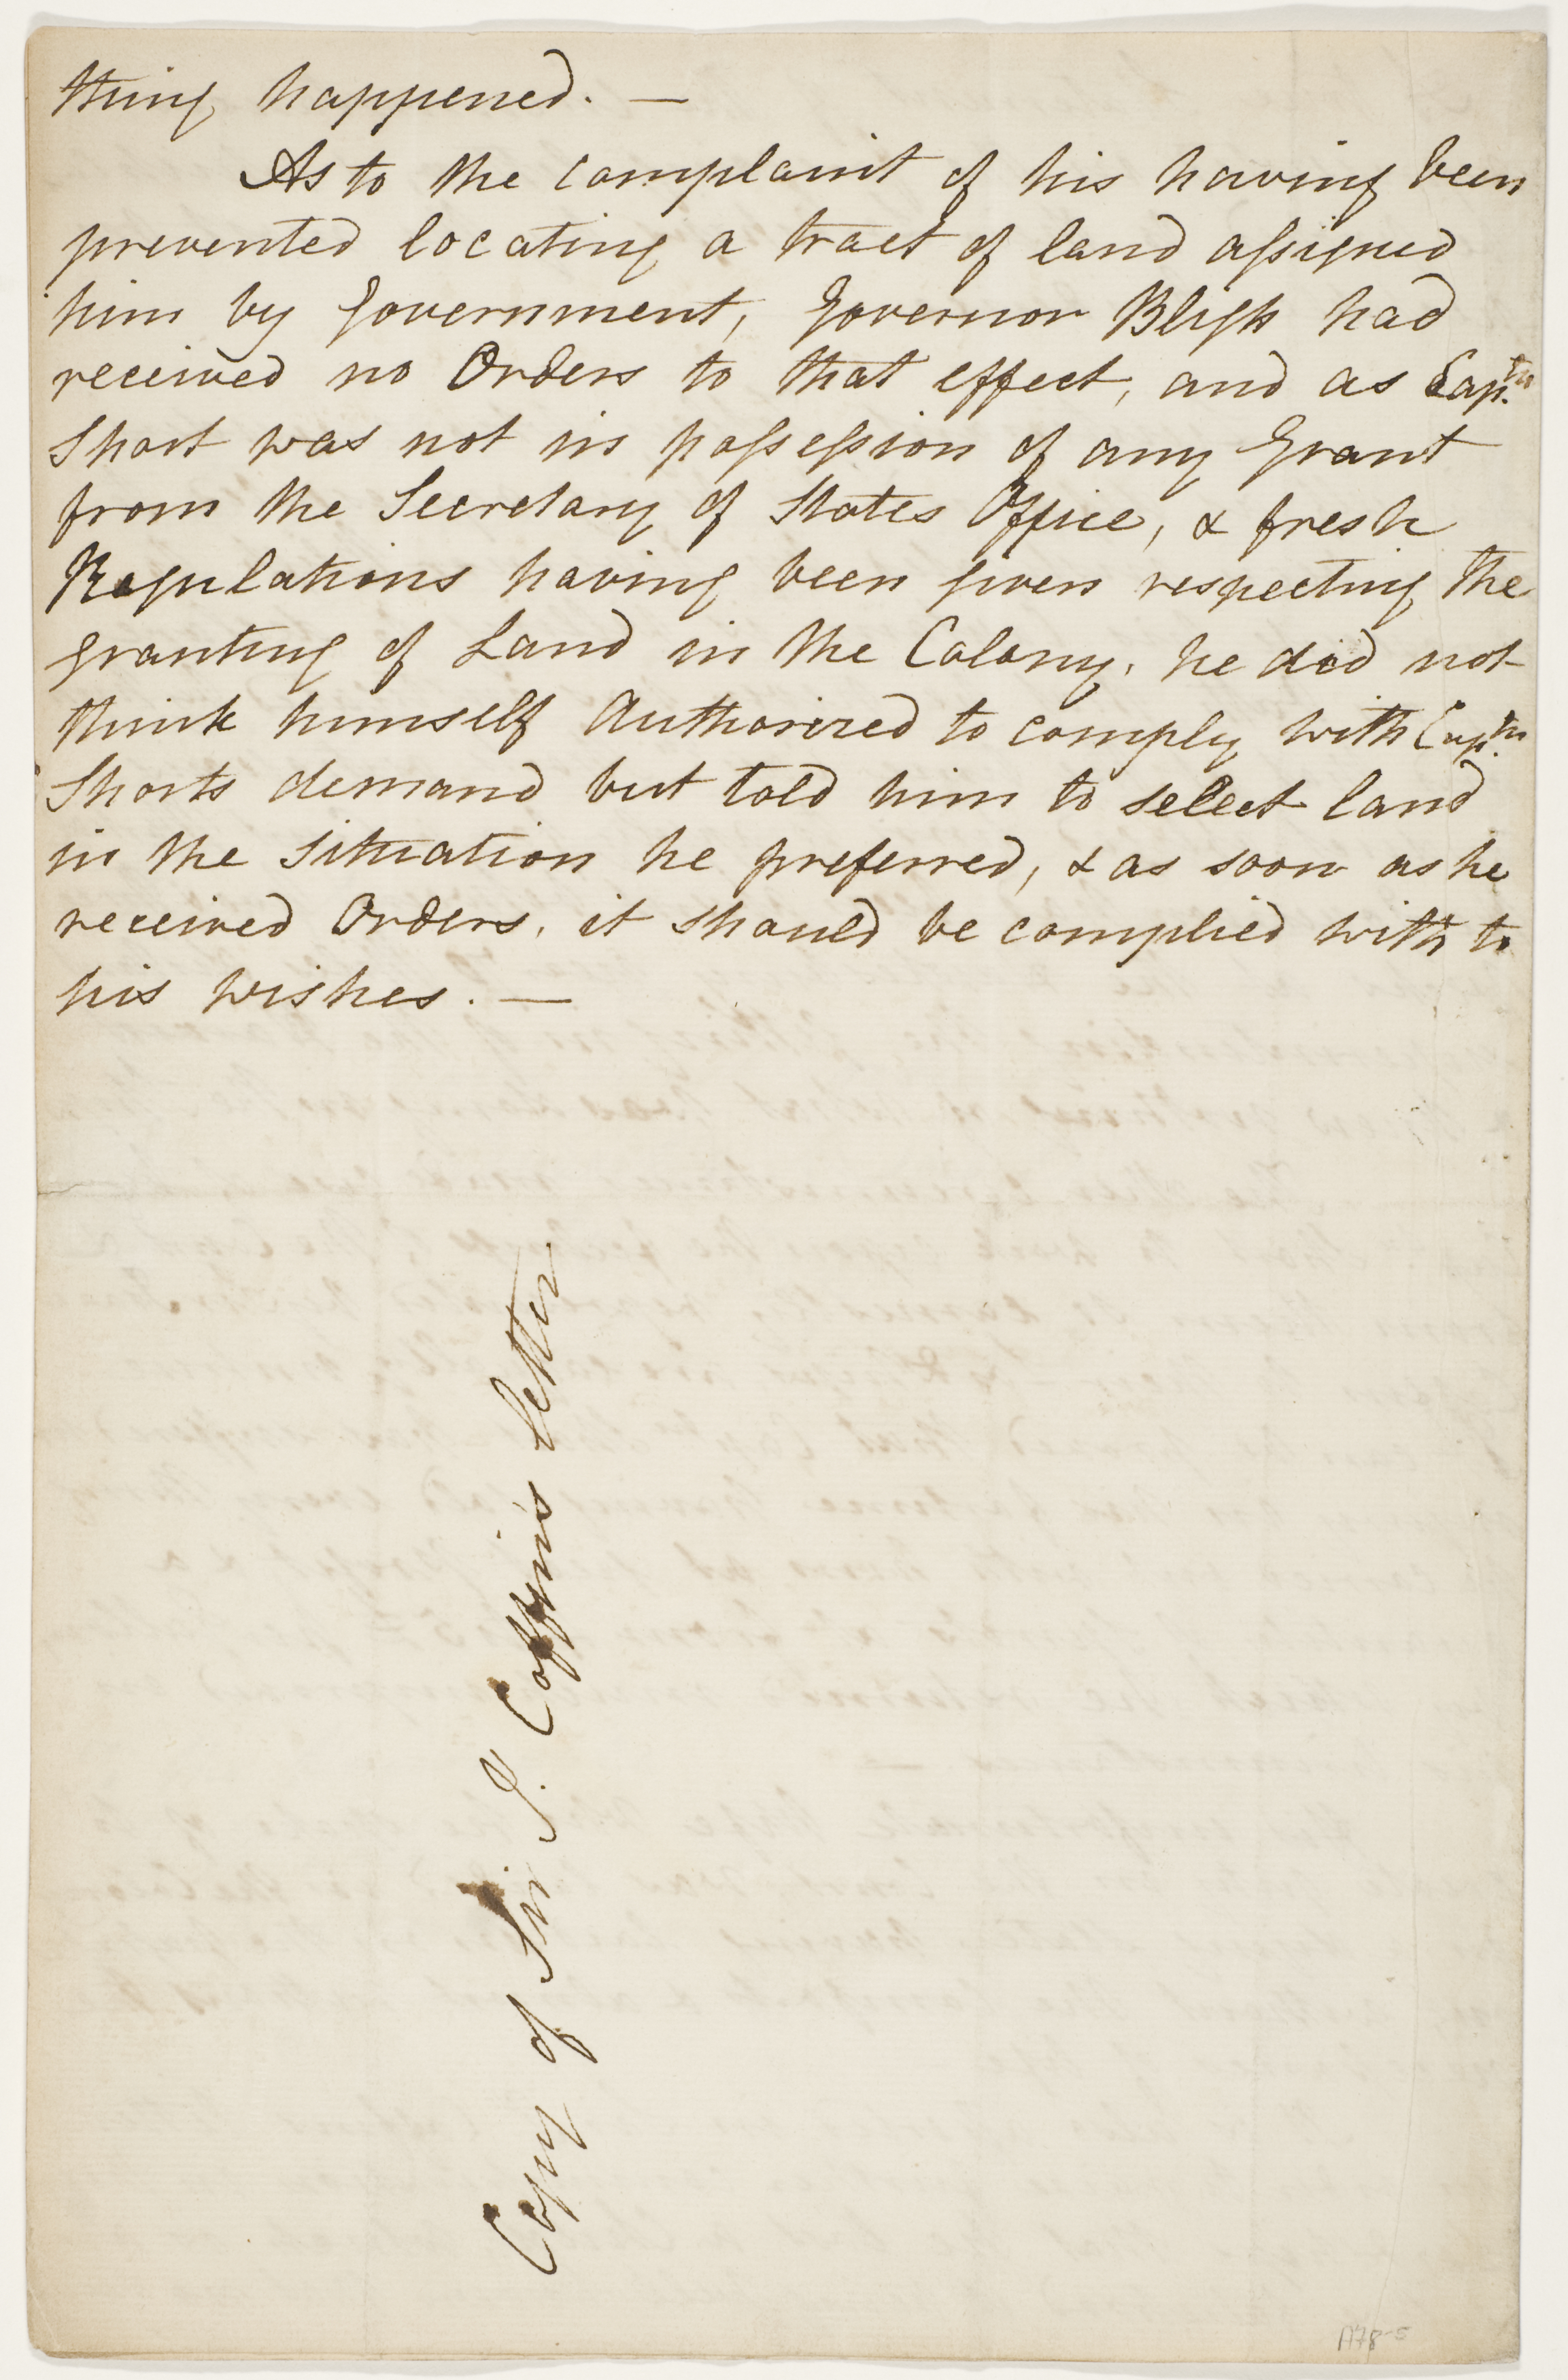 thing happened. —
As to the complaint of his having been
prevented locating a tract of land assigned
him by Government, Governor Bligh had
received no Orders to that effect, and as Captn.
Short was not in possession of any Grant
from the Secretary of States Office, & fresh
Regulations having been given respecting the
granting of Land in the Colony, he did not
think himself Authorized to comply with Captn.
Shorts demand but told him to select land
in the situation he preferred, & as soon as he
received Orders, it should be complied with to
his wishes. —
Copy of Sir I. Coffin's letter
A78-5